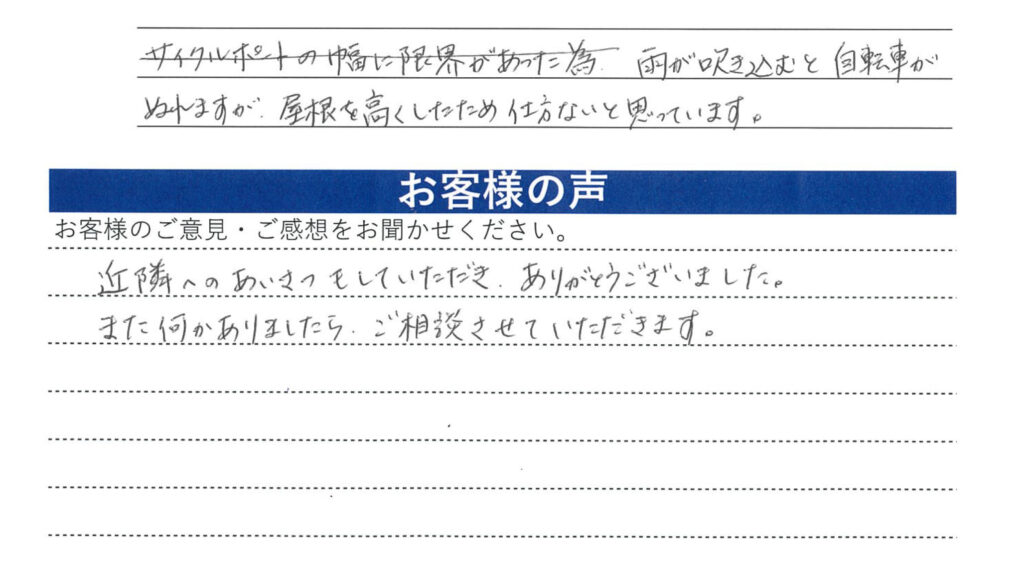 サイクルポートの幅に限界があった為、雨が吹き込むと自転車が
ぬれますが、屋根を高くしたため仕方ないと思っています。
お客様の声
お客様のご意見・ご感想をお聞かせください。
近隣へのあいさつもしていただき、ありがとうございました。
また何かありましたら、ご相談させていただきます。